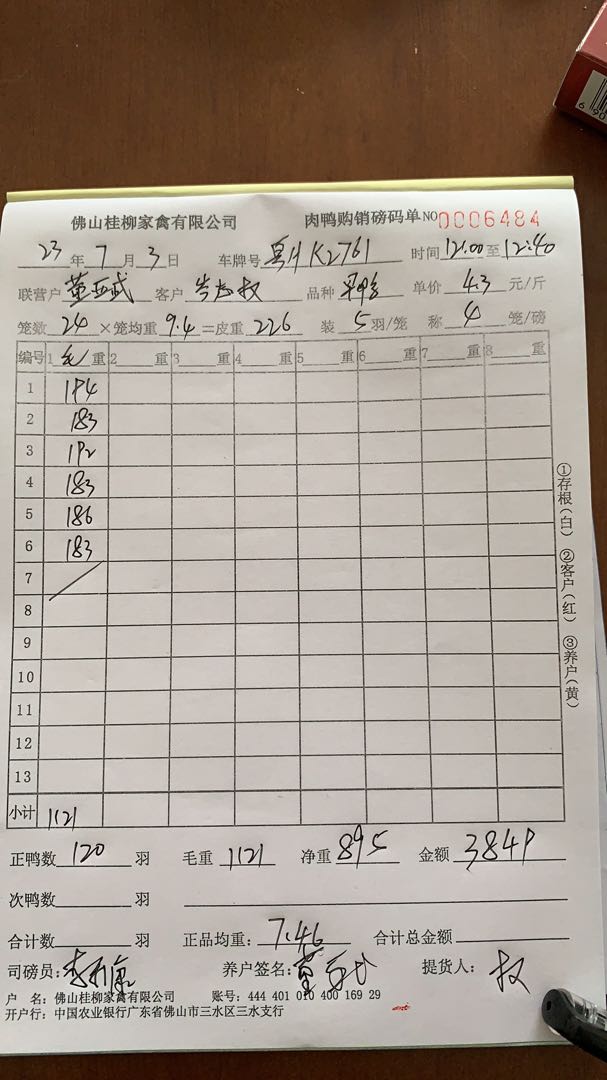 佛山桂柳家禽有限公司 肉鸭购销磅码单 NO 0006484
23年7月3日 车牌号 K2761 时间12:00至12:40
联营户 董亚武 客户 品种 单价 4.3 元/斤
笼数 24 ×笼均重 9.4 =皮重 226 装 5 羽/笼 称 4 笼/磅
编号 1 毛 重 2 重 3 重 4 重 5 重 6 重 7 重 8 重
1 194
2 183
3 192
4 183
5 186
6 183
7
8
9
10
11
12
13
小计 1121
①存根(白) ②客户(红) ③养户(黄)
正鸭数 120 羽 毛重 1121 净重 895 金额 3849
次鸭数 羽
合计数 羽 正品均重: 7.46 合计总金额
司磅员: 养户签名: 董 提货人: 权
户 名: 佛山桂柳家禽有限公司 账号: 444 401 010 400 169 29
开户行: 中国农业银行广东省佛山市三水区三水支行